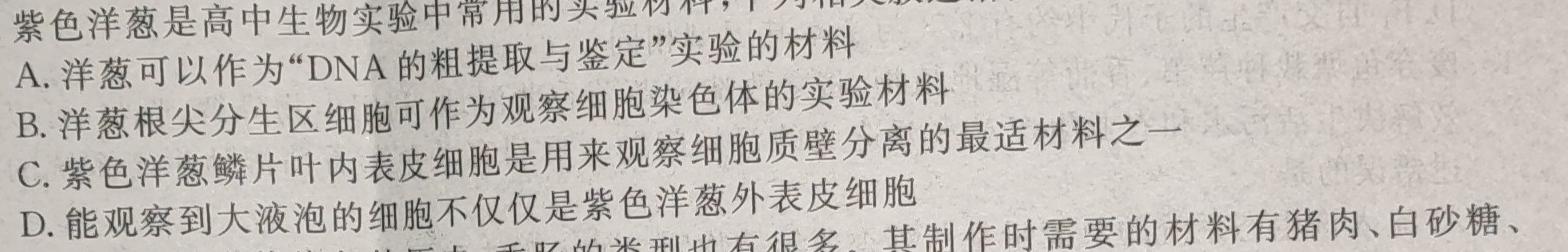 紫色洋葱是高中生物实验中常用的实验材料,下列相关叙述
A. 洋葱可以作为“DNA的粗提取与鉴定”实验的材料
B. 洋葱根尖分生区细胞可作为观察细胞染色体的实验材料
C. 紫色洋葱鳞片叶内表皮细胞是用来观察细胞质壁分离的最适材料之一
D. 能观察到大液泡的细胞不仅仅是紫色洋葱外表皮细胞
香肠的类型也有很多。其制作时需要的材料有猪肉、白砂糖、